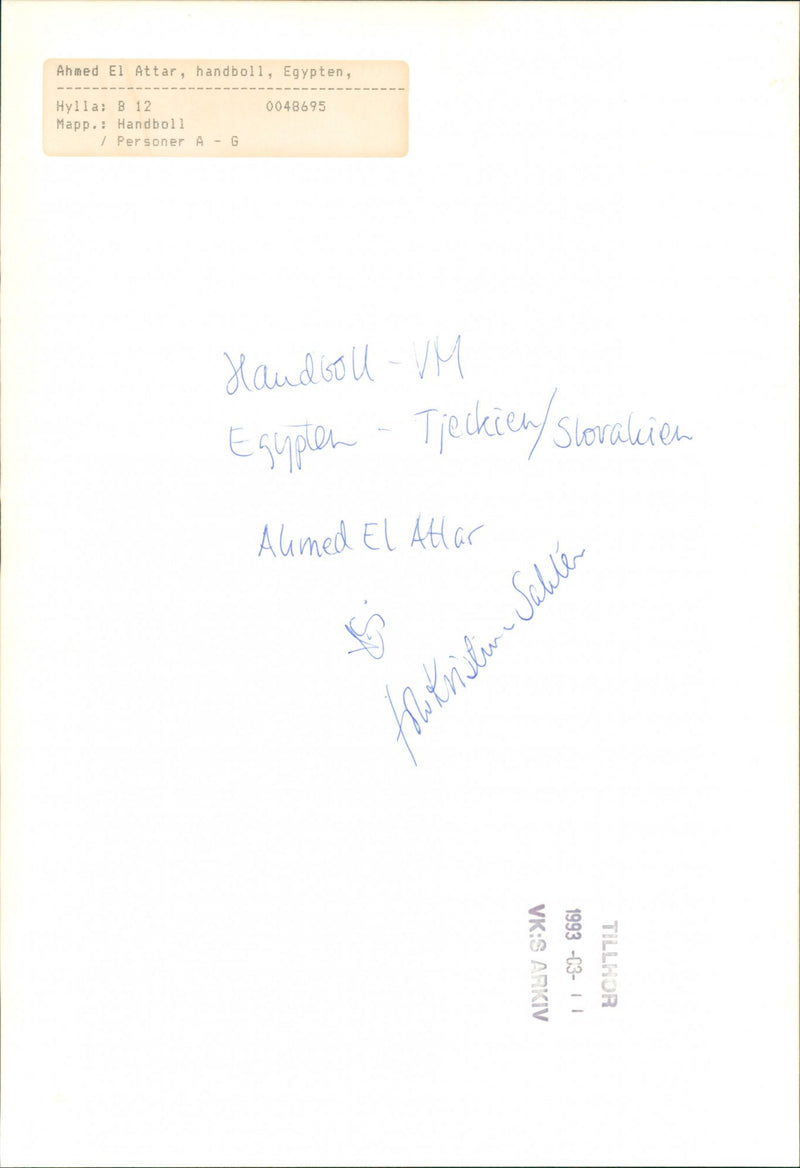 Ahmed El Attar, handboll, Egypten,
----------------------------------------
Hylla: B 12 0048695
Mapp.: Handboll
/ Personer A - G
Handboll - VM
Egypten - Tjeckien/Slovakien
Ahmed El Attar
TILLHÖR
1993 -03- 11
VK:S ARKIV